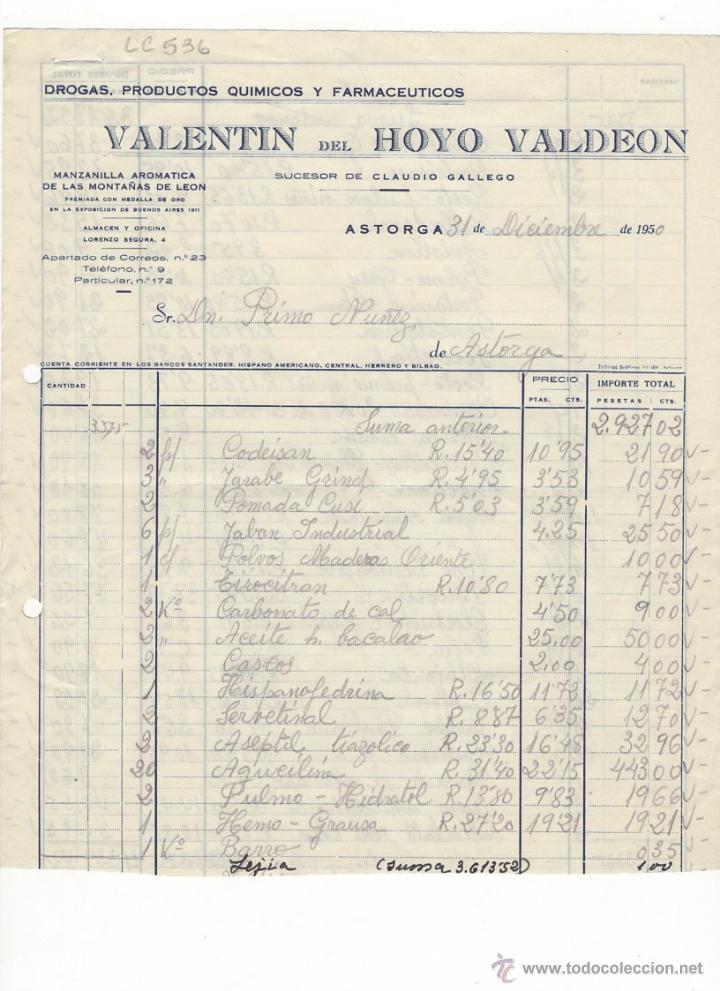 LC 536
DROGAS, PRODUCTOS QUIMICOS Y FARMACEUTICOS
VALENTIN DEL HOYO VALDEON
MANZANILLA AROMATICA
DE LAS MONTAÑAS DE LEON
PREMIADA CON MEDALLA DE ORO
EN LA EXPOSICION DE BUENOS AIRES 1911
ALMACEN Y OFICINA
LORENZO SEGURA, 4
Apartado de Correos, n.º 23
Teléfono, n.º 9
Particular, n.º 172
SUCESOR DE CLAUDIO GALLEGO
ASTORGA 31 de Diciembre de 1950
Sr. Dn. Primo Nuñez
de Astorga
CUENTA CORRIENTE EN LOS BANCOS SANTANDER, HISPANO AMERICANO, CENTRAL, HERRERO Y BILBAO.
CANTIDAD PRECIO IMPORTE TOTAL
PTAS. CTS. PESETAS CTS.
3375 Suma anterior 2.927 02
2 f/ Codeisan R. 15'40 10'95 21 90
3 " Jarabe Grind R. 4'95 3'53 10 59
2 Pomada Cusi R. 5'03 3'59 7 18
6 p/ Jabon Industrial 4.25 25 50
1 c/ Polvos Maderas Oriente 10 00
1 Tirocitran R. 10'80 7'73 7 73
2 Kº Carbonato de cal 4'50 9 00
2 " Aceite h. bacalao 25.00 50 00
2 Cascos 2.00 4 00
1 Hispanofedrina R. 16'50 11'72 11 72
2 Servetinal R. 8'87 6'35 12 70
2 Aseptil tiazolico R. 23'30 16'48 32 96
20 Aqucilina R. 31'40 22'15 443 00
2 Pulmo - Hidratol R. 13'80 9'83 19 66
1 Hemo - Grausa R. 27'20 19'21 19 21
1 Kº Barro 0 35
Lejia (Suma 3.613'52) 1 00
www.todocoleccion.net